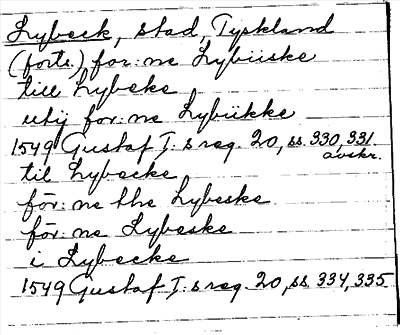 Lybeck, stad, Tyskland
(forts.) for:ne Lybiiske
till Lybeke
utij for:ne Lybiikke
1549 Gustaf I:s reg. 20, ss. 330, 331
avskr.
til Lybecke
för:ne the Lybeske
för:ne Lybeske
i Lybecke
1549 Gustaf I:s reg. 20, ss. 334, 335